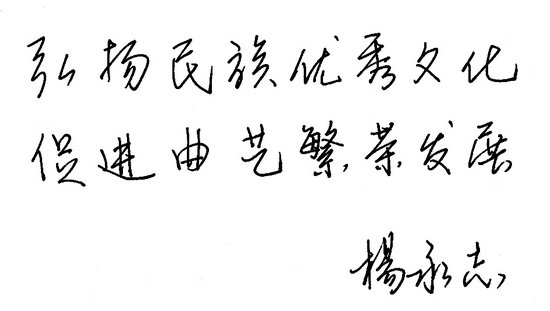 弘扬民族优秀文化
促进曲艺繁荣发展
楊永志